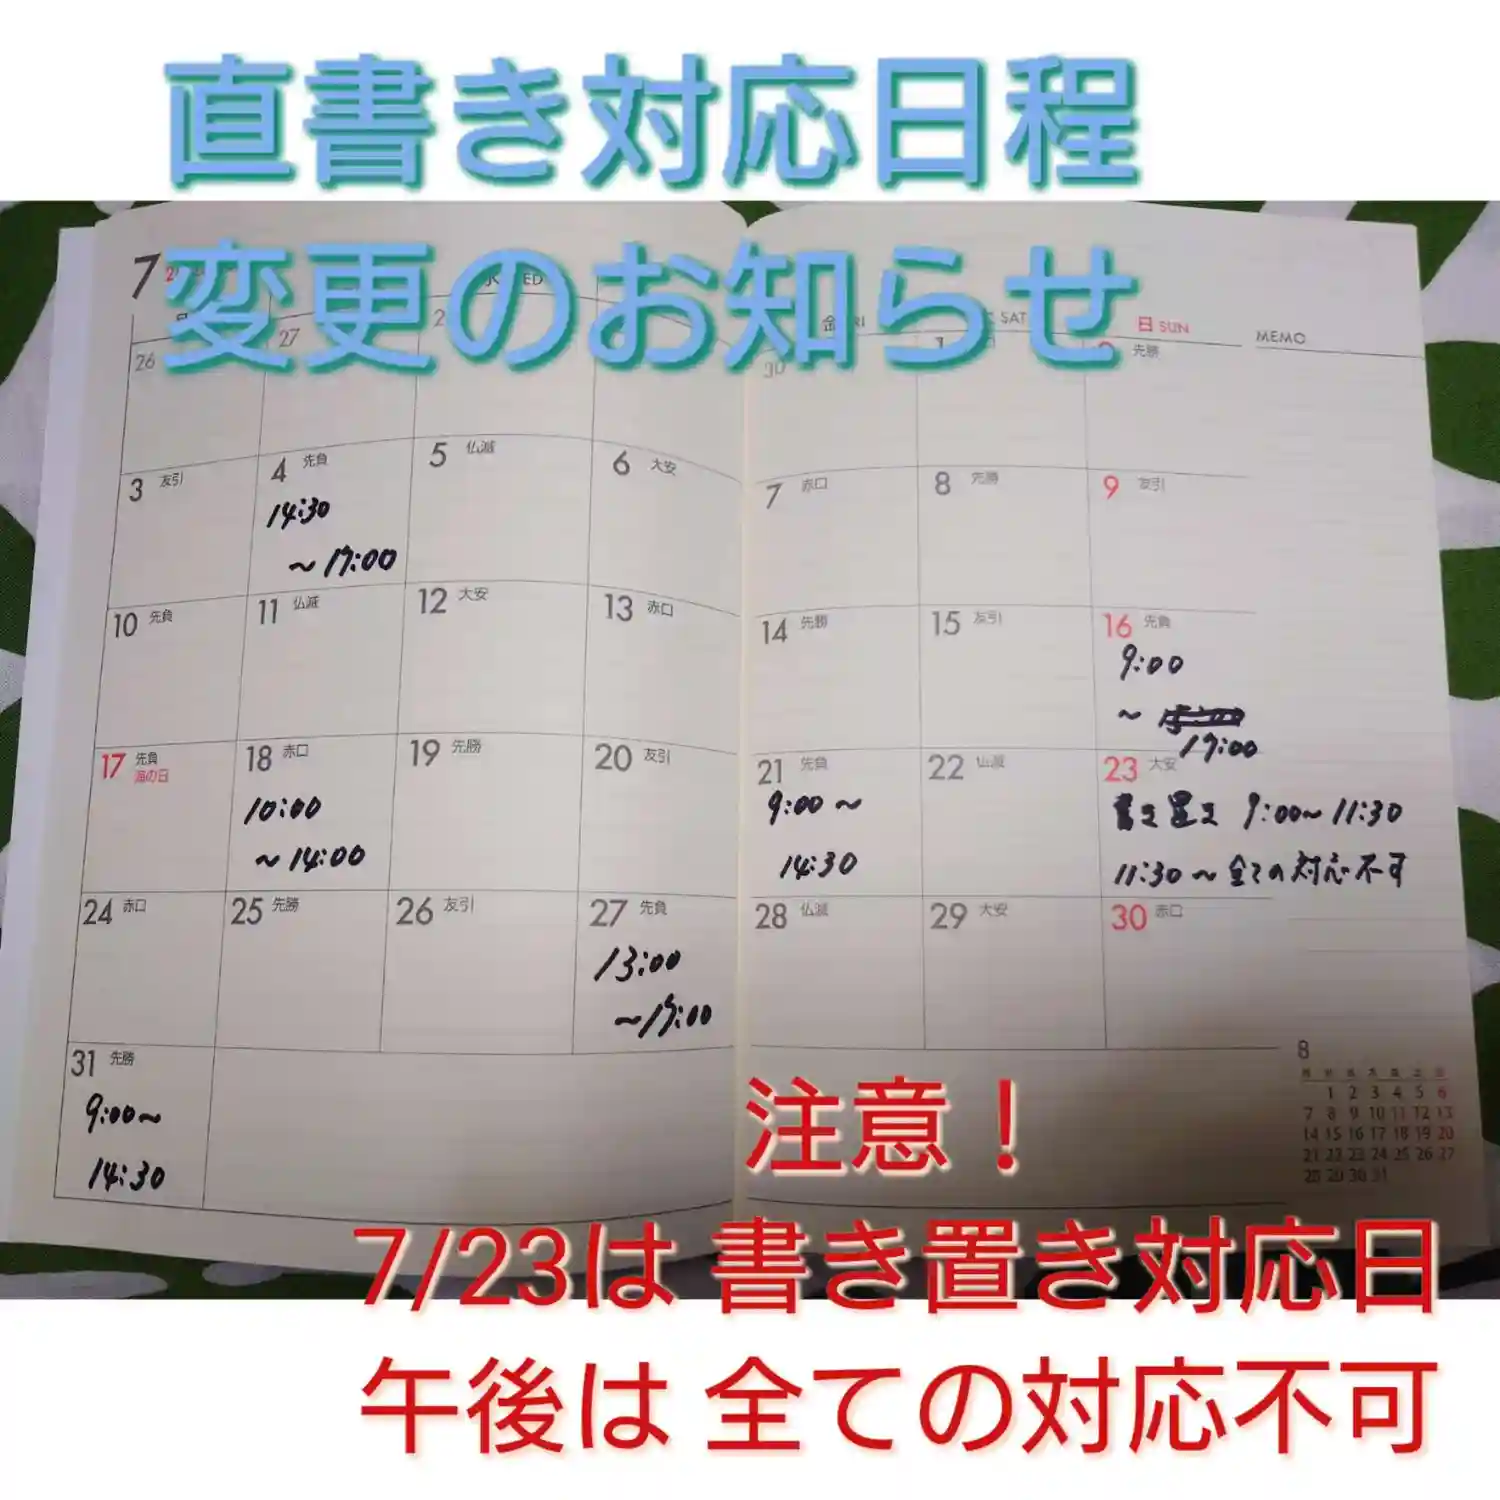 直書き対応日程
変更のお知らせ
7
金 FRI
SAT
日 SUN
MEMO
26
27
30
1
先勝
3 友引
4 先負
14:30
～17:00
5 仏滅
6 大安
7 赤口
8 先勝
9 友引
10 先負
11 仏滅
12 大安
13 赤口
14 先勝
15 友引
16 先負
9:00
～
17:00
17 先負
海の日
18 赤口
10:00
～14:00
19 先勝
20 友引
21 先負
9:00～
14:30
22 仏滅
23 大安
書き置き 9:00～11:30
11:30～全ての対応不可
24 赤口
25 先勝
26 友引
27 先負
13:00
～17:00
28 仏滅
29 大安
30 赤口
31 先勝
9:00～
14:30
8
1 2 3 4 5 6
7 8 9 10 11 12 13
14 15 16 17 18 19 20
21 22 23 24 25 26 27
28 29 30 31
注意！
7/23は 書き置き対応日
午後は 全ての対応不可